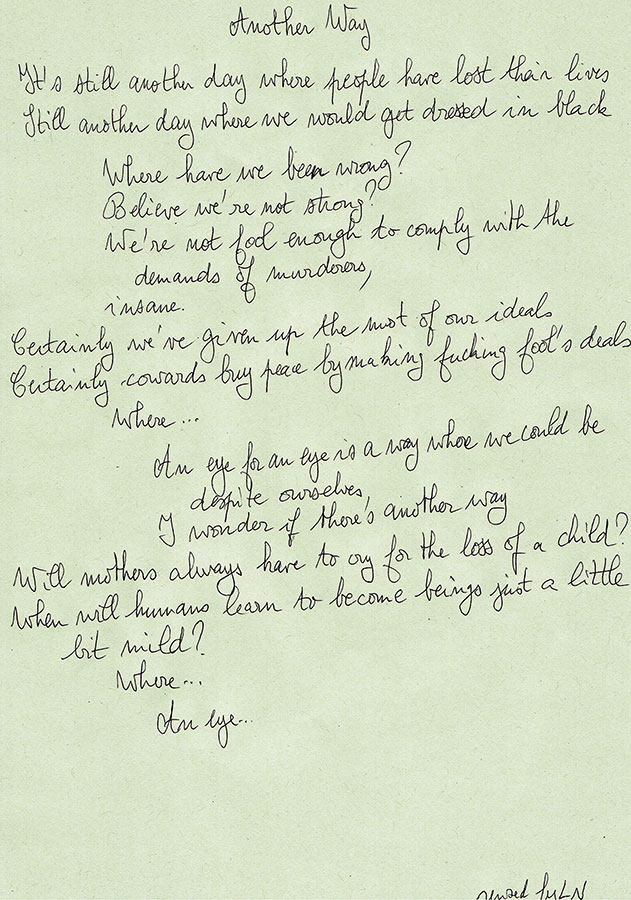 Another Way
It's still another day where people have lost their lives
Still another day where we would get dressed in black
Where have we been wrong?
Believe we're not strong?
We're not fool enough to comply with the
demands of murderers,
insane.
Certainly we've given up the most of our ideals
Certainly cowards buy peace by making fucking fool's deals
Where...
An eye for an eye is a way where we could be
despite ourselves,
I wonder if there's another way
Will mothers always have to cry for the loss of a child?
When will humans learn to become beings just a little
bit mild?
Where...
An eye...
by LN